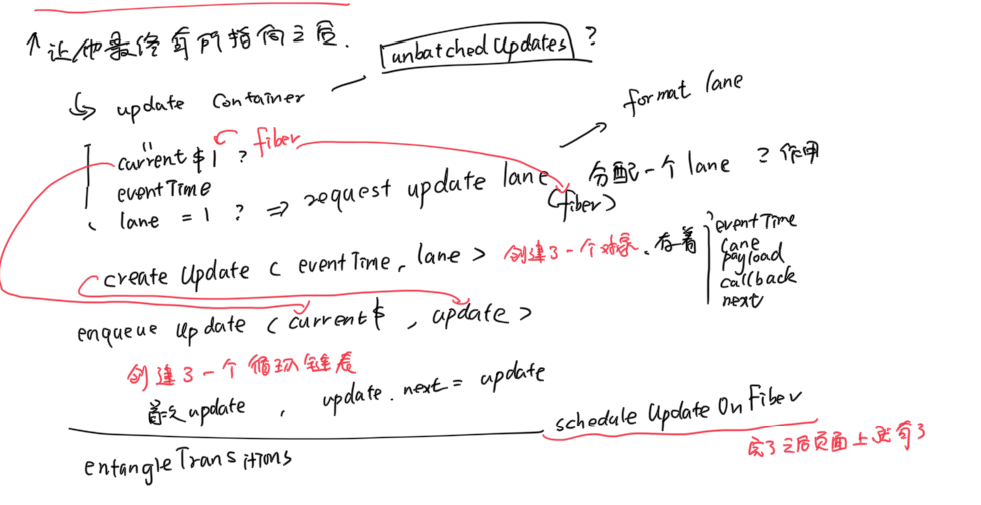 ↑让他最终有所指向之后.
unbatchedUpdates ?
↳ update Container
format lane
current$1 ? fiber
eventTime
lane = 1 ? ⇒ request update lane (fiber) 分配一个lane ? 作用
create Update ( eventTime, lane ) 创建了一个对象. 存着
eventTime
lane
payload
callback
next
enqueue Update ( current$ , update )
创建了一个循环链表
首次update , update.next = update
schedule Update On Fiber
完了之后页面上就有了
entangleTransitions